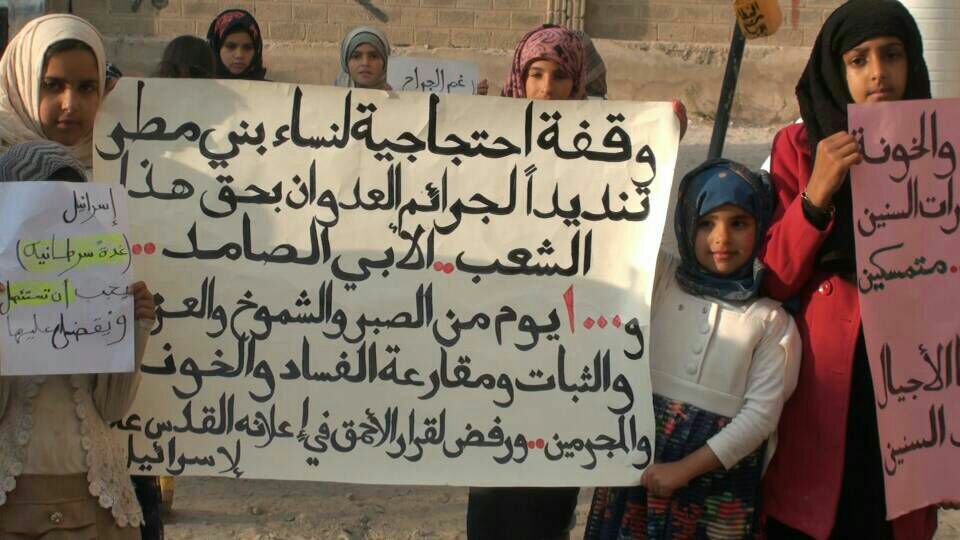 رغم الجراح
وقفة احتجاجية لنساء بني مطر
تنديداً لجرائم العدوان بحق هذا
الشعب.. الأبي الصامد..
و١٠٠٠ يوم من الصبر والشموخ والعز
والثبات ومقارعة الفساد والخون
والمجرمين.. ورفض لقرار الأحمق في إعلانه القدس عا
لإسرائيل
إسرائيل
(غدة سرطانية)
يجب أن تستئصل
ونقضي عليها
والخونة
رات السنين
متمسكين
الأجيال
السنين